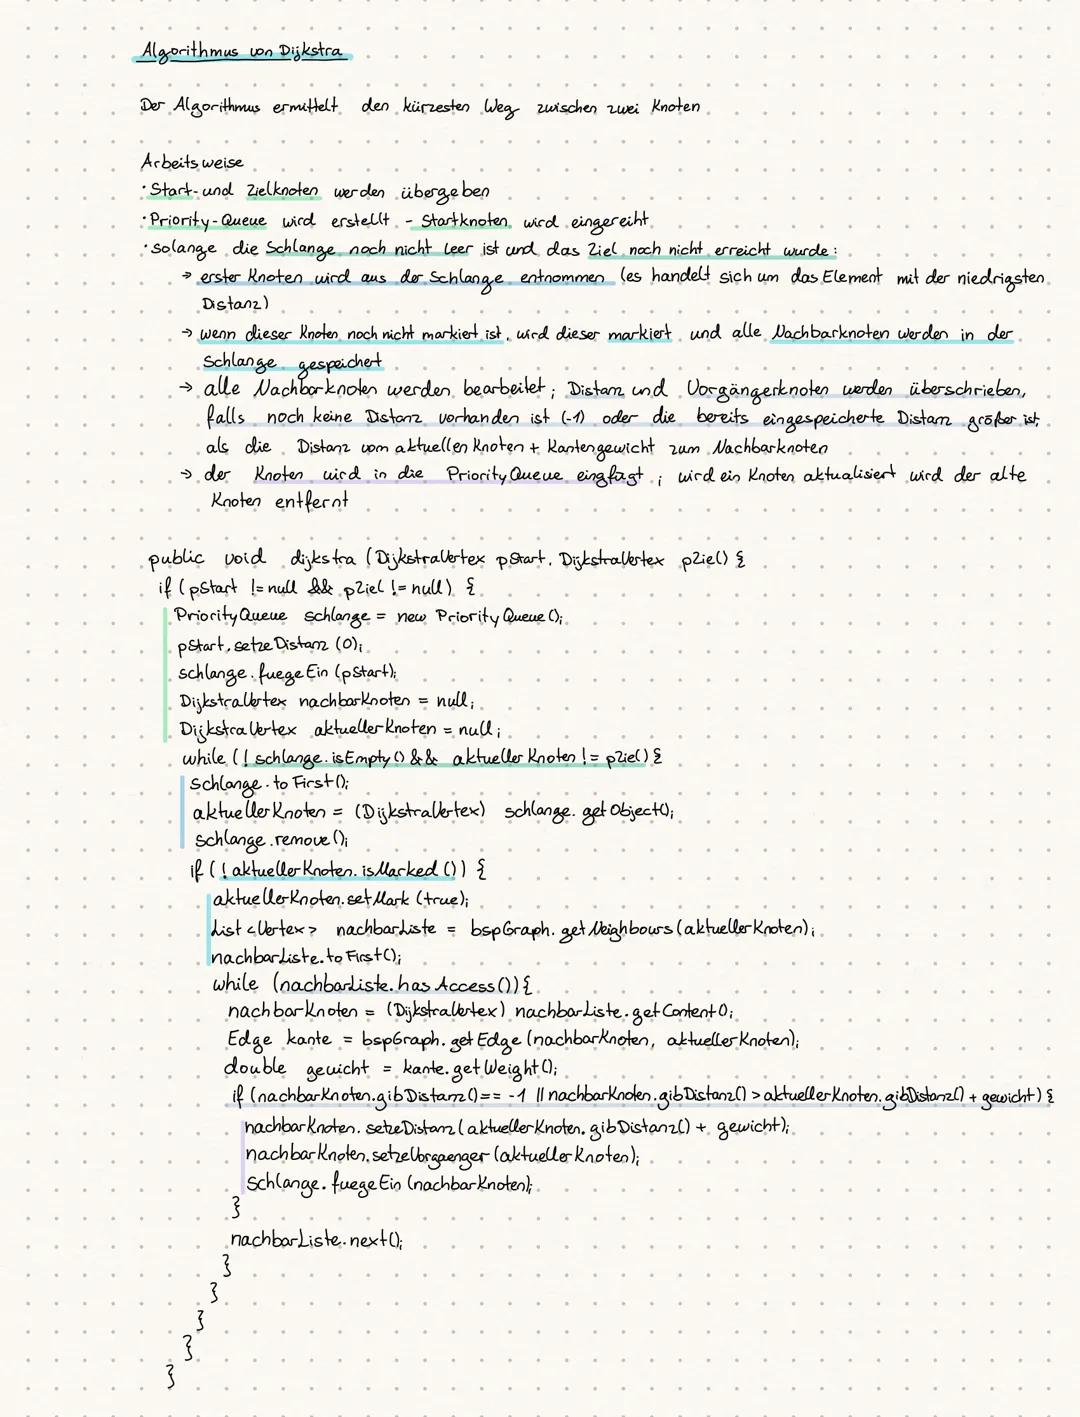 Algorithmus von Dijkstra
Der Algorithmus ermittelt den kürzesten Weg zwischen zwei Knoten
Arbeitsweise
· Start- und Zielknoten werden übergeben
· Priority-Queue wird erstellt - Startknoten wird eingereiht
· solange die Schlange noch nicht leer ist und das Ziel noch nicht erreicht wurde:
→ erster Knoten wird aus der Schlange entnommen (es handelt sich um das Element mit der niedrigsten
Distanz)
→ wenn dieser Knoten noch nicht markiert ist, wird dieser markiert und alle Nachbarknoten werden in der
Schlange gespeichert
→ alle Nachbarknoten werden bearbeitet; Distanz und Vorgängerknoten werden überschrieben,
falls noch keine Distanz vorhanden ist (-1) oder die bereits eingespeicherte Distanz größer ist,
als die Distanz vom aktuellen Knoten + Kantengewicht zum Nachbarknoten
→ der Knoten wird in die PriorityQueue eingfügt; wird ein Knoten aktualisiert wird der alte
Knoten entfernt
public void dijkstra (DijkstraVertex pStart, DijkstraVertex pZiel) {
if (pStart != null && pZiel != null) {
PriorityQueue schlange = new PriorityQueue();
pStart.setzeDistanz (0);
schlange.fuegeEin (pStart);
DijkstraVertex nachbarKnoten = null;
DijkstraVertex aktuellerKnoten = null;
while (! schlange.isEmpty() && aktuellerKnoten != pZiel) {
schlange.toFirst();
aktuellerKnoten = (DijkstraVertex) schlange.getObject();
schlange.remove();
if (! aktuellerKnoten.isMarked ()) {
aktuellerKnoten.setMark (true);
List <Vertex> nachbarListe = bspGraph.getNeighbours(aktuellerKnoten);
nachbarListe.toFirst();
while (nachbarListe.hasAccess()) {
nachbarKnoten = (DijkstraVertex) nachbarListe.getContent();
Edge kante = bspGraph.getEdge (nachbarKnoten, aktuellerKnoten);
double gewicht = kante.getWeight();
if (nachbarKnoten.gibDistanz() == -1 || nachbarKnoten.gibDistanz() > aktuellerKnoten.gibDistanz() + gewicht) {
nachbarKnoten.setzeDistanz (aktuellerKnoten.gibDistanz() + gewicht);
nachbarKnoten.setzeVorgaenger (aktuellerKnoten);
schlange.fuegeEin (nachbarKnoten);
}
nachbarListe.next();
}
}
}
}
}